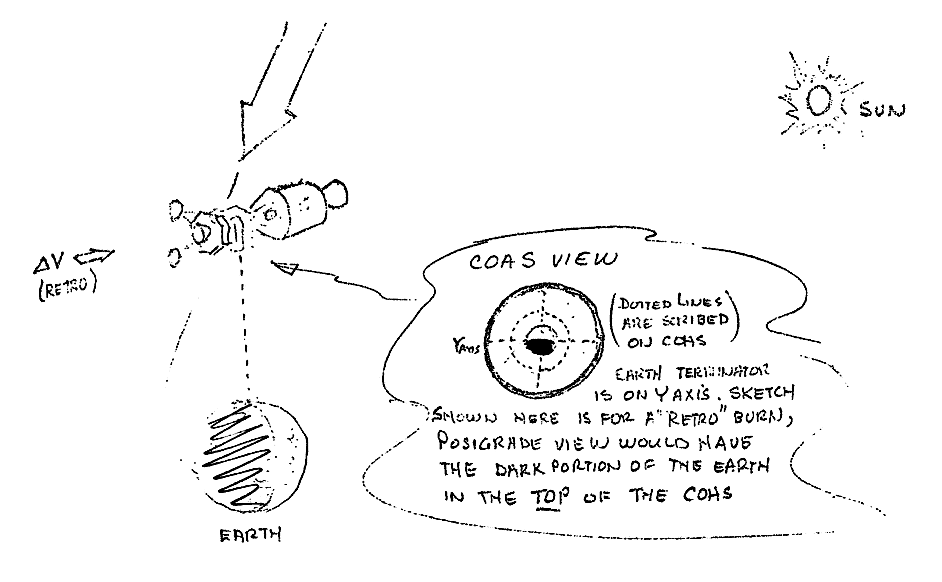 SUN
ΔV
(RETRO)
COAS VIEW
Y AXIS
(DOTTED LINES
ARE SCRIBED
ON COAS)
EARTH TERMINATOR
IS ON Y AXIS. SKETCH
SHOWN HERE IS FOR A "RETRO" BURN,
POSIGRADE VIEW WOULD HAVE
THE DARK PORTION OF THE EARTH
IN THE TOP OF THE COAS
EARTH